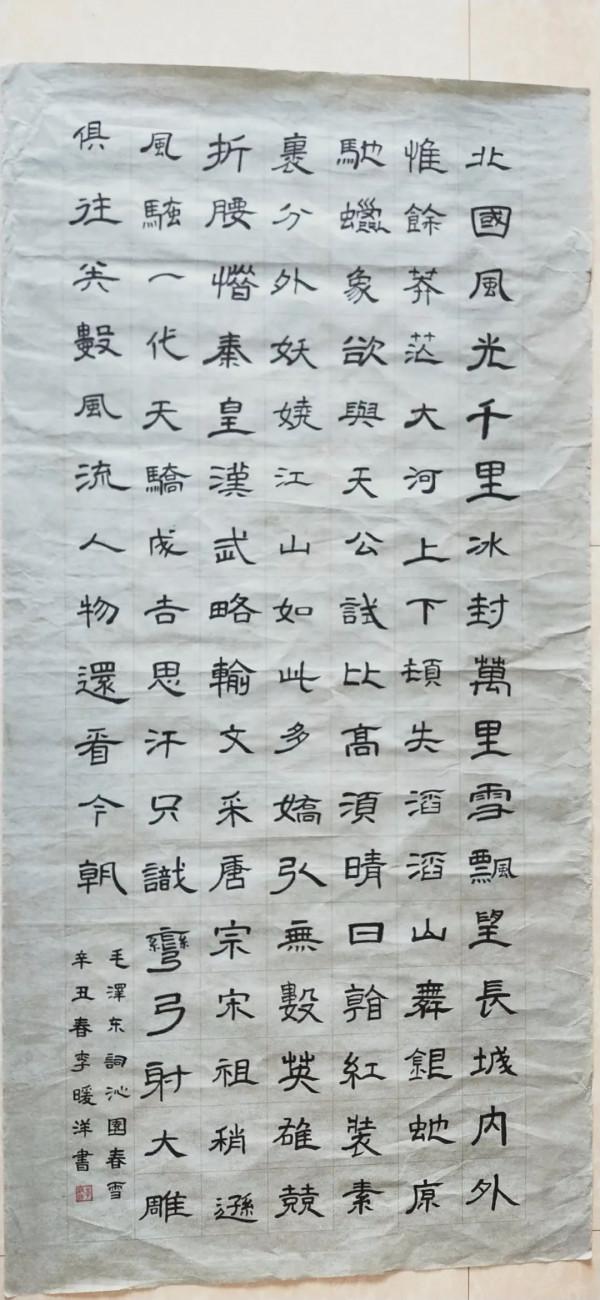 北國風光千里冰封萬里雪飄望長城内外
惟餘莽茫大河上下頓失滔滔山舞銀虵原
馳蠟象欲與天公試比高須晴日翰紅裝素
裹分外妖嬈江山如此多嬌引無數英雄競
折腰惜秦皇漢武略輸文采唐宗宋祖稍遜
風騷一代天驕成吉思汗只識彎弓射大雕
俱往矣數風流人物還看今朝
毛澤东詞沁園春雪
辛丑春李暖洋書